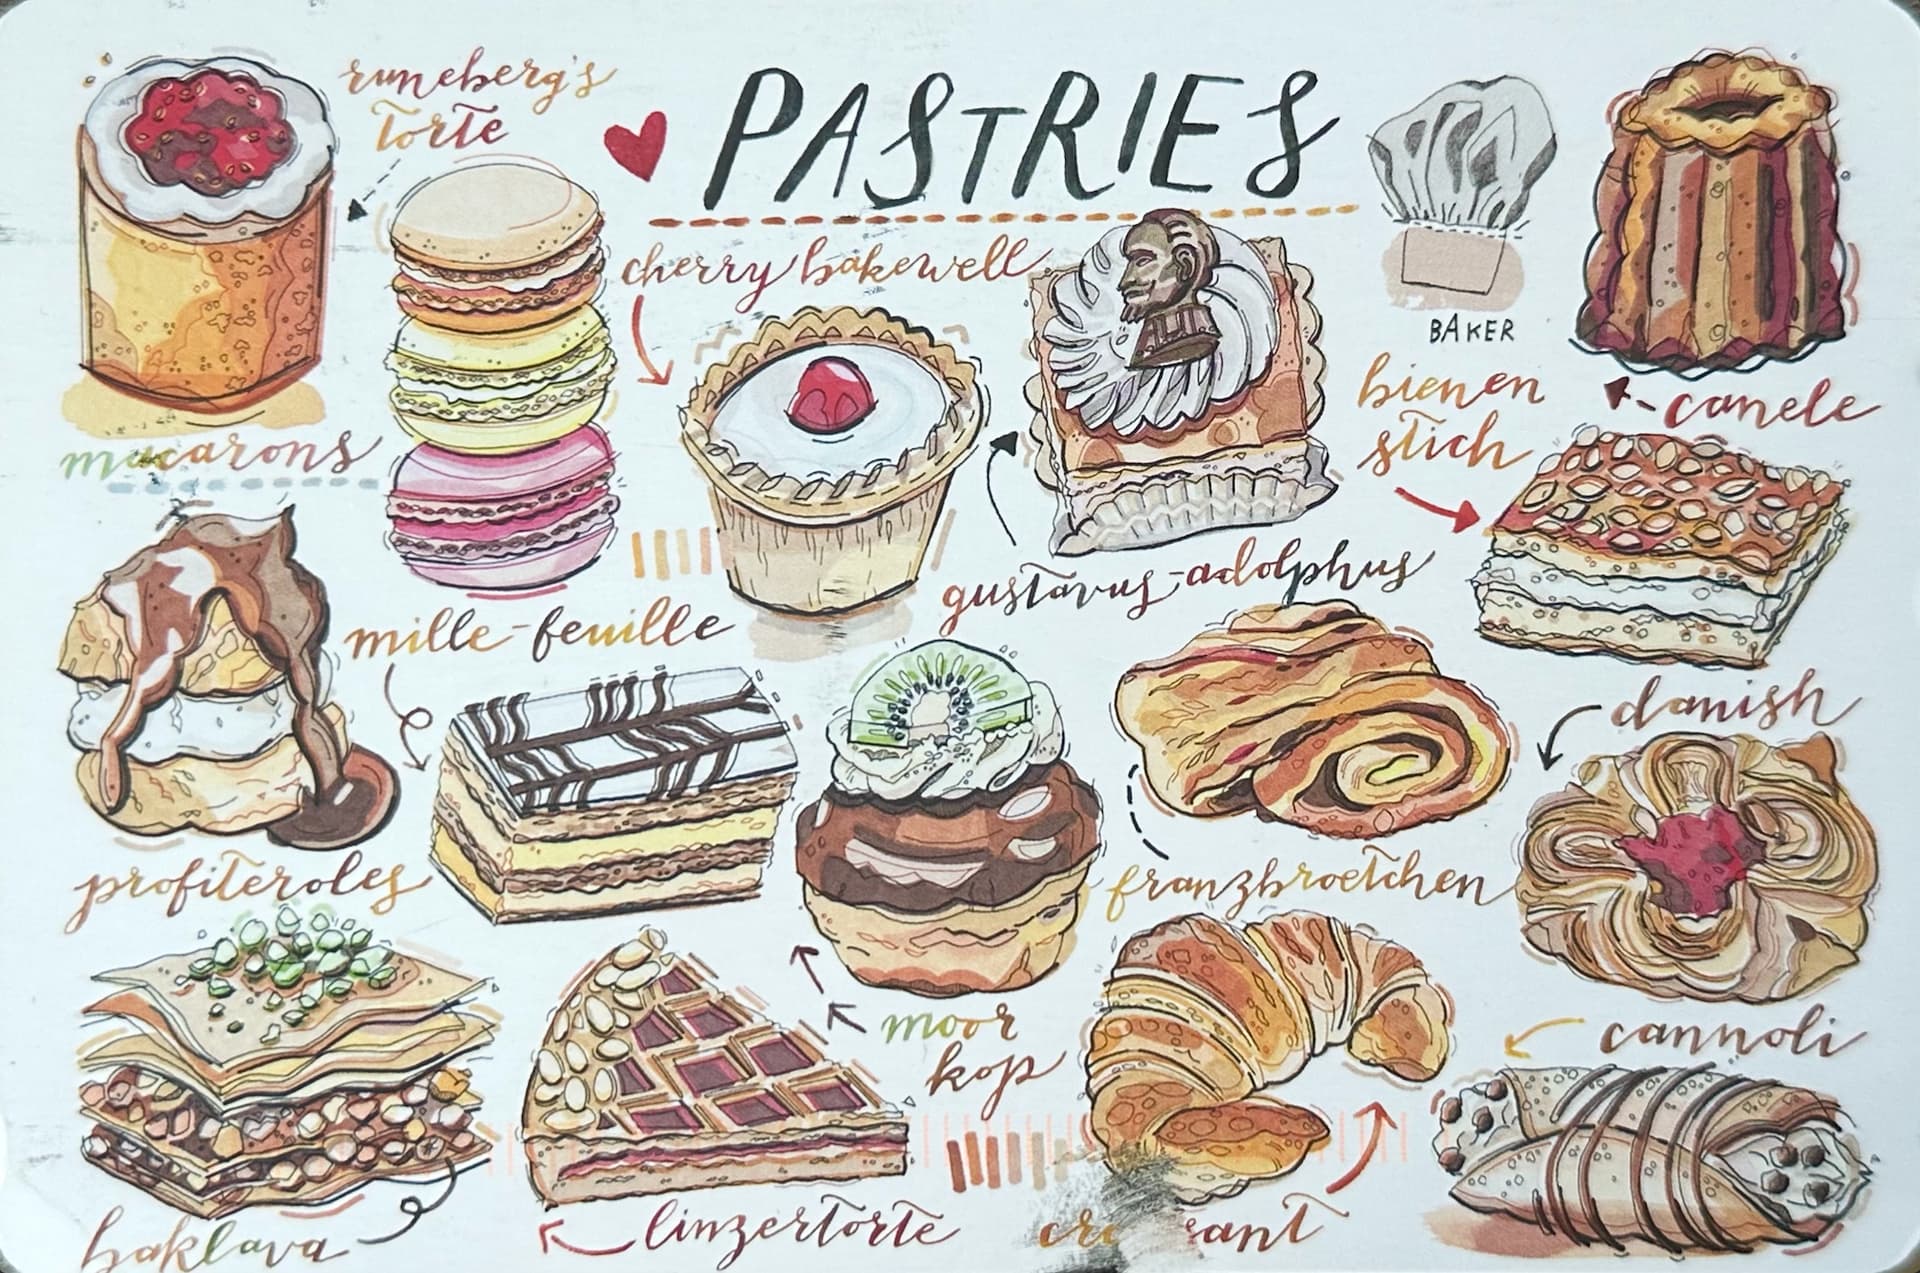 runeberg's
torte
PASTRIES
cherry bakewell
BAKER
bienen
stich
canele
macarons
gustavus-adolphus
mille-feuille
danish
profiteroles
franzbroetchen
moor
kop
cannoli
baklava
linzertorte